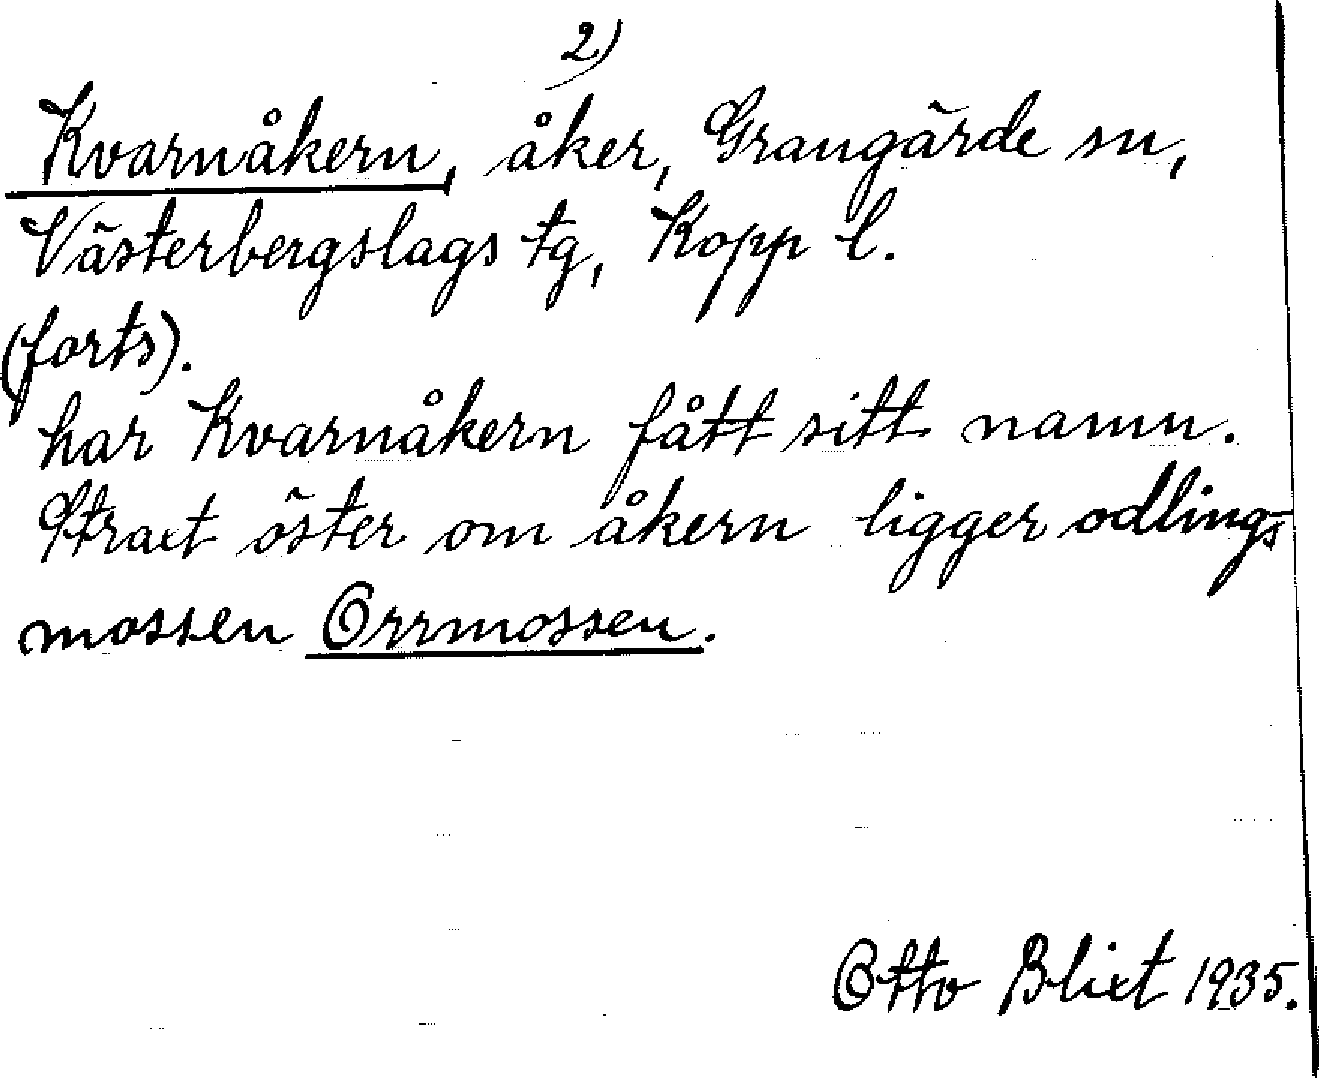 2)
Kvarnåkern, åker, Grangärde sn,
Västerbergslags tg, Kopp l.
(forts).
har Kvarnåkern fått sitt namn.
Straxt öster om åkern ligger odlings-
mossen Orrmossen.
Otto Blixt 1935.